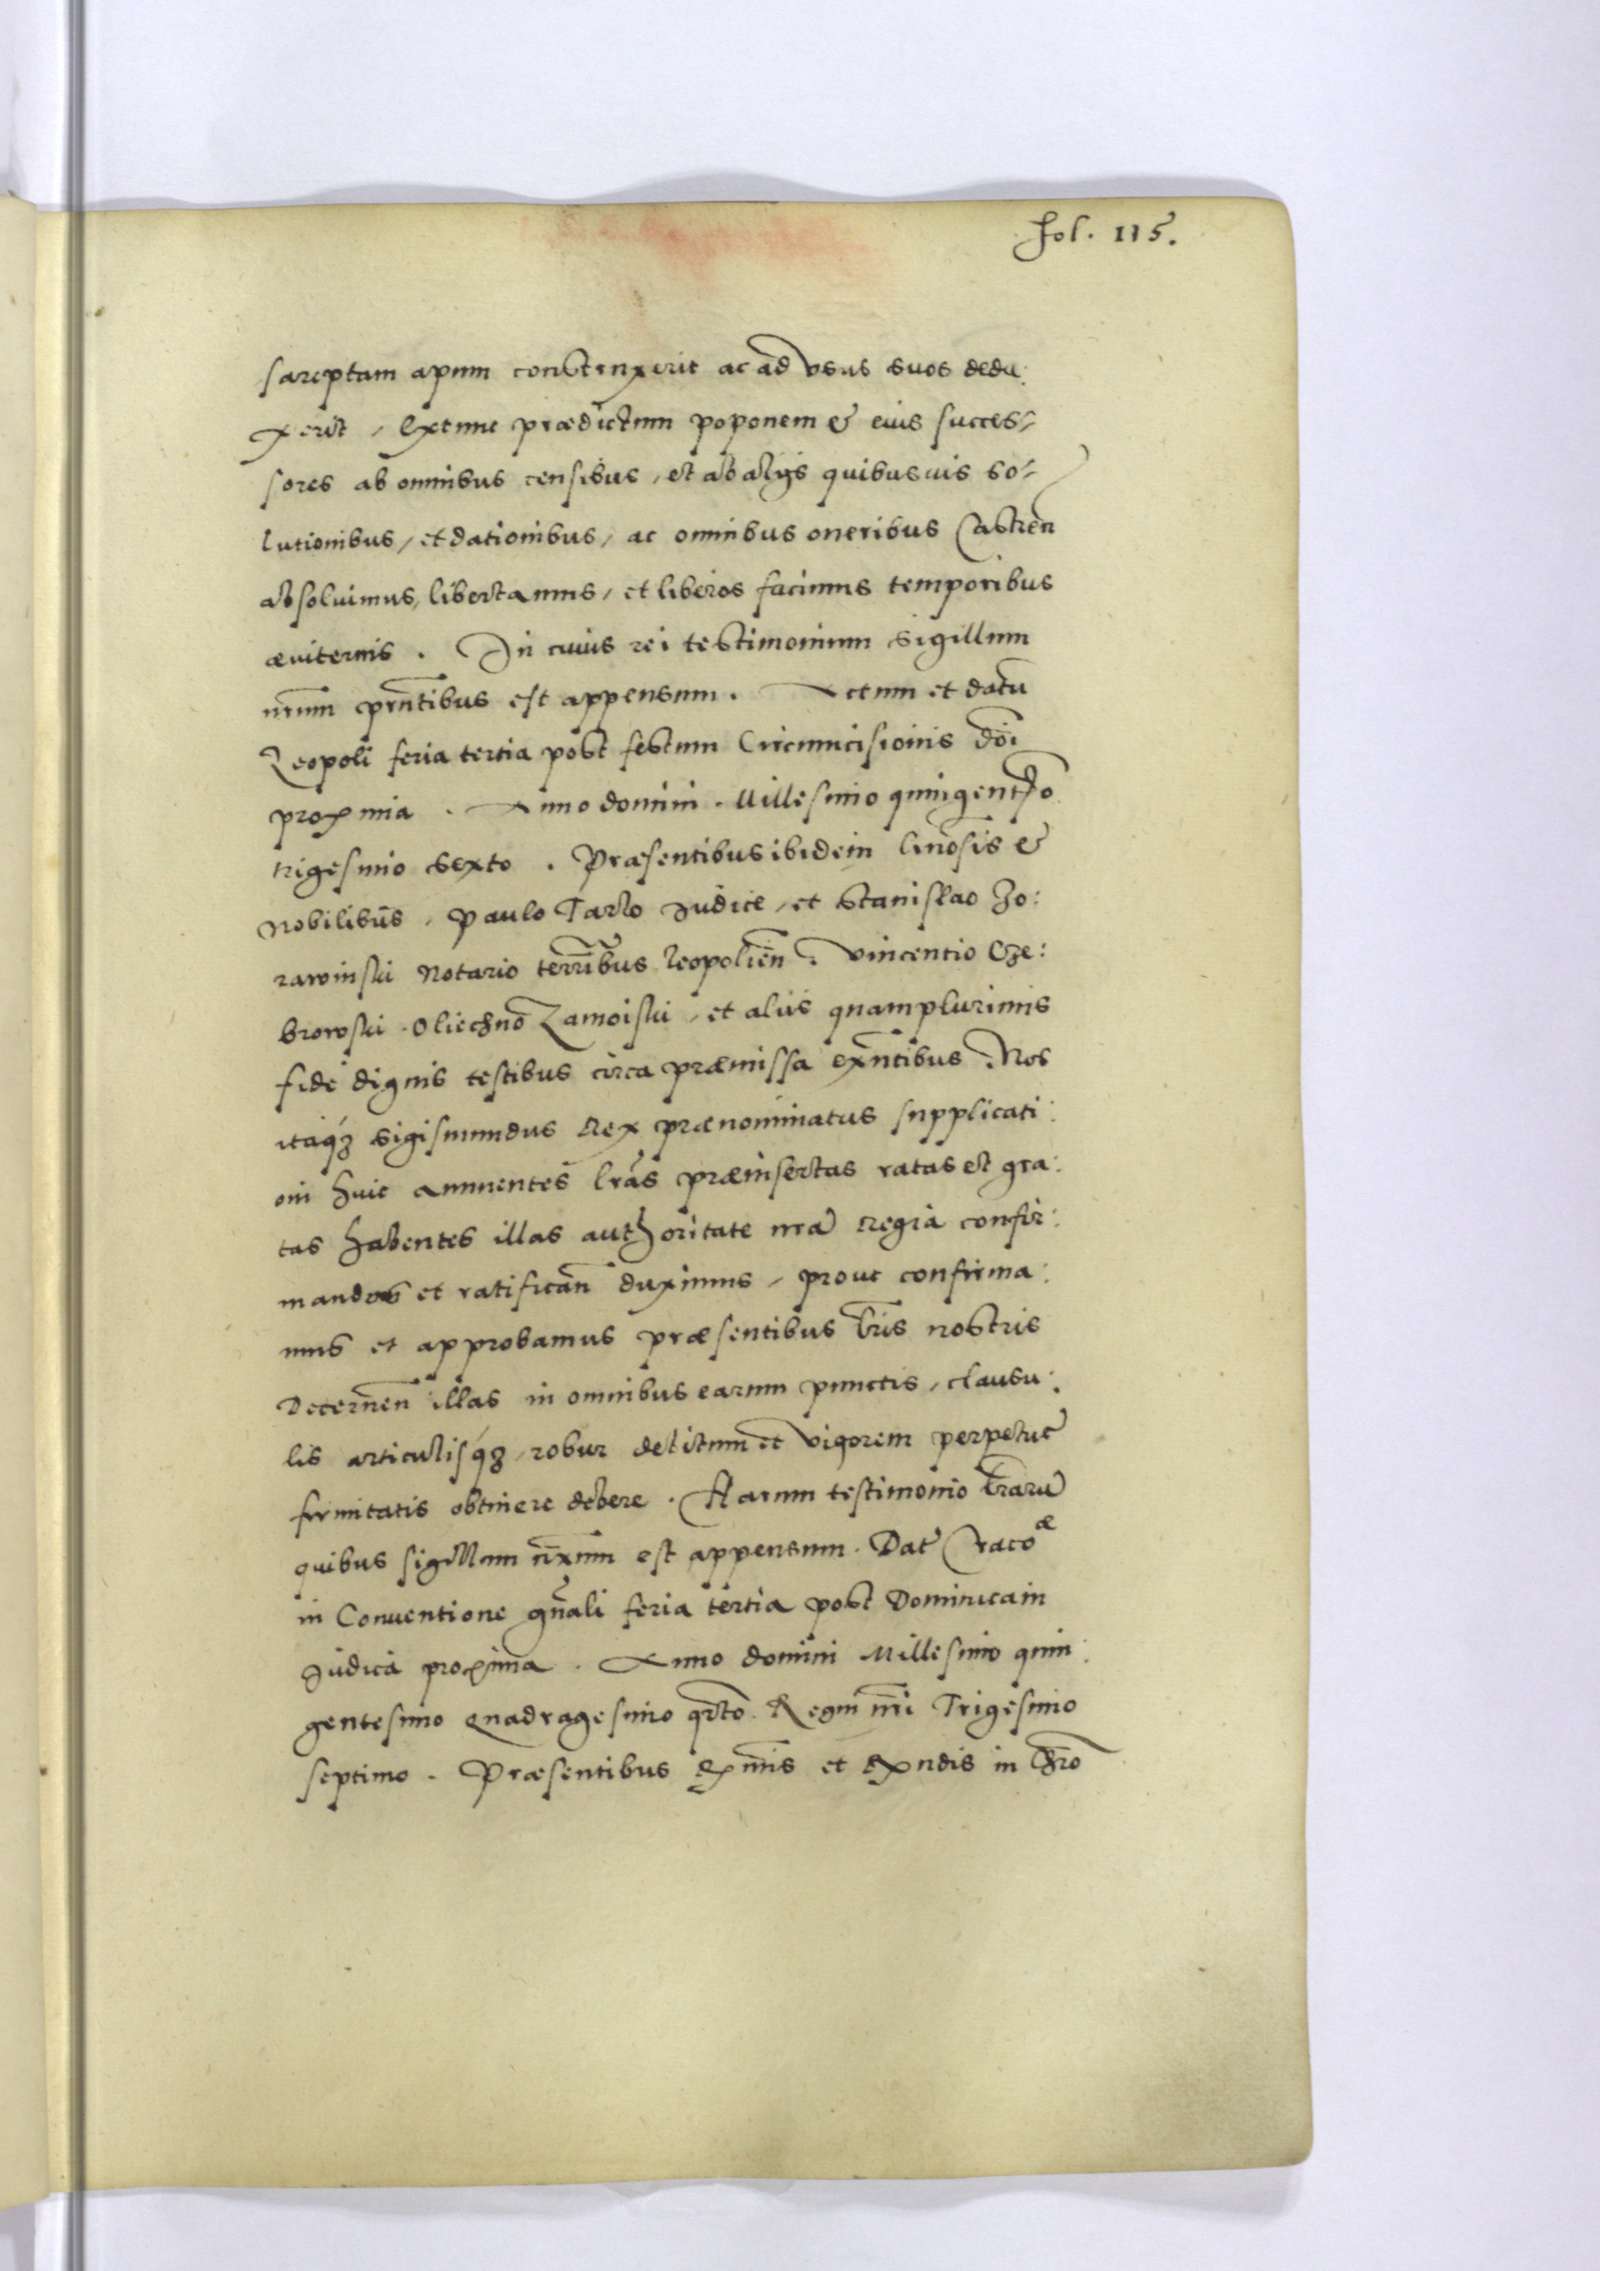 fol. 115.
sareptam apum constrnxerit ac ad vsus suos dedu:
xerit, Extunc prædictum poponem & eius succes=
sores ab omnibus censibus, et ab alijs quibusuis so=
lutionibus, et dationibus, ac omnibus oneribus Castren
absoluimus, libertamus, et liberos facimus temporibus
æuiternis. In cuius rei testimonium sigillum
nrum prntibus est appensum. Actum et datu
Leopoli feria tertia post festum Circumcisionis dni
proxima. Anno domini. Millesimo quingentmo
trigesimo sexto. Præsentibus ibidem Gnosis &
Nobilibus, Paulo Tarlo Judice, et Stanislao Zo:
rawinski Notario terribus Leopolien. Vincentio Cze:
browski. Oliechno Zamoiski, et aliis quamplurimis
fide dignis testibus circa præmissa exntibus. Nos
itaqz Sigismundus Rex prænominatus supplicati:
oni huic annuentes lras præinsertas ratas et gra:
tas habentes illas authoritate nra regia confir:
mandas et ratifican duximus, prout confirma:
mus et approbamus præsentibus lris nostris
Decernen illas in omnibus earum punctis, clausu:
lis articulisqz, robur debitum et vigorem perpetue
firmitatis obtinere debere. Harum testimonio lraru
quibus sigillum nrum est appensum. Dat Craco æ
in Conuentione gnali feria tertia post Dominicam
Judica proxima. Anno domini Millesimo quin:
gentesimo Quadragesimo qrto. Regni nri Trigesimo
septimo. Præsentibus Rxmis et Rxndis in Chro